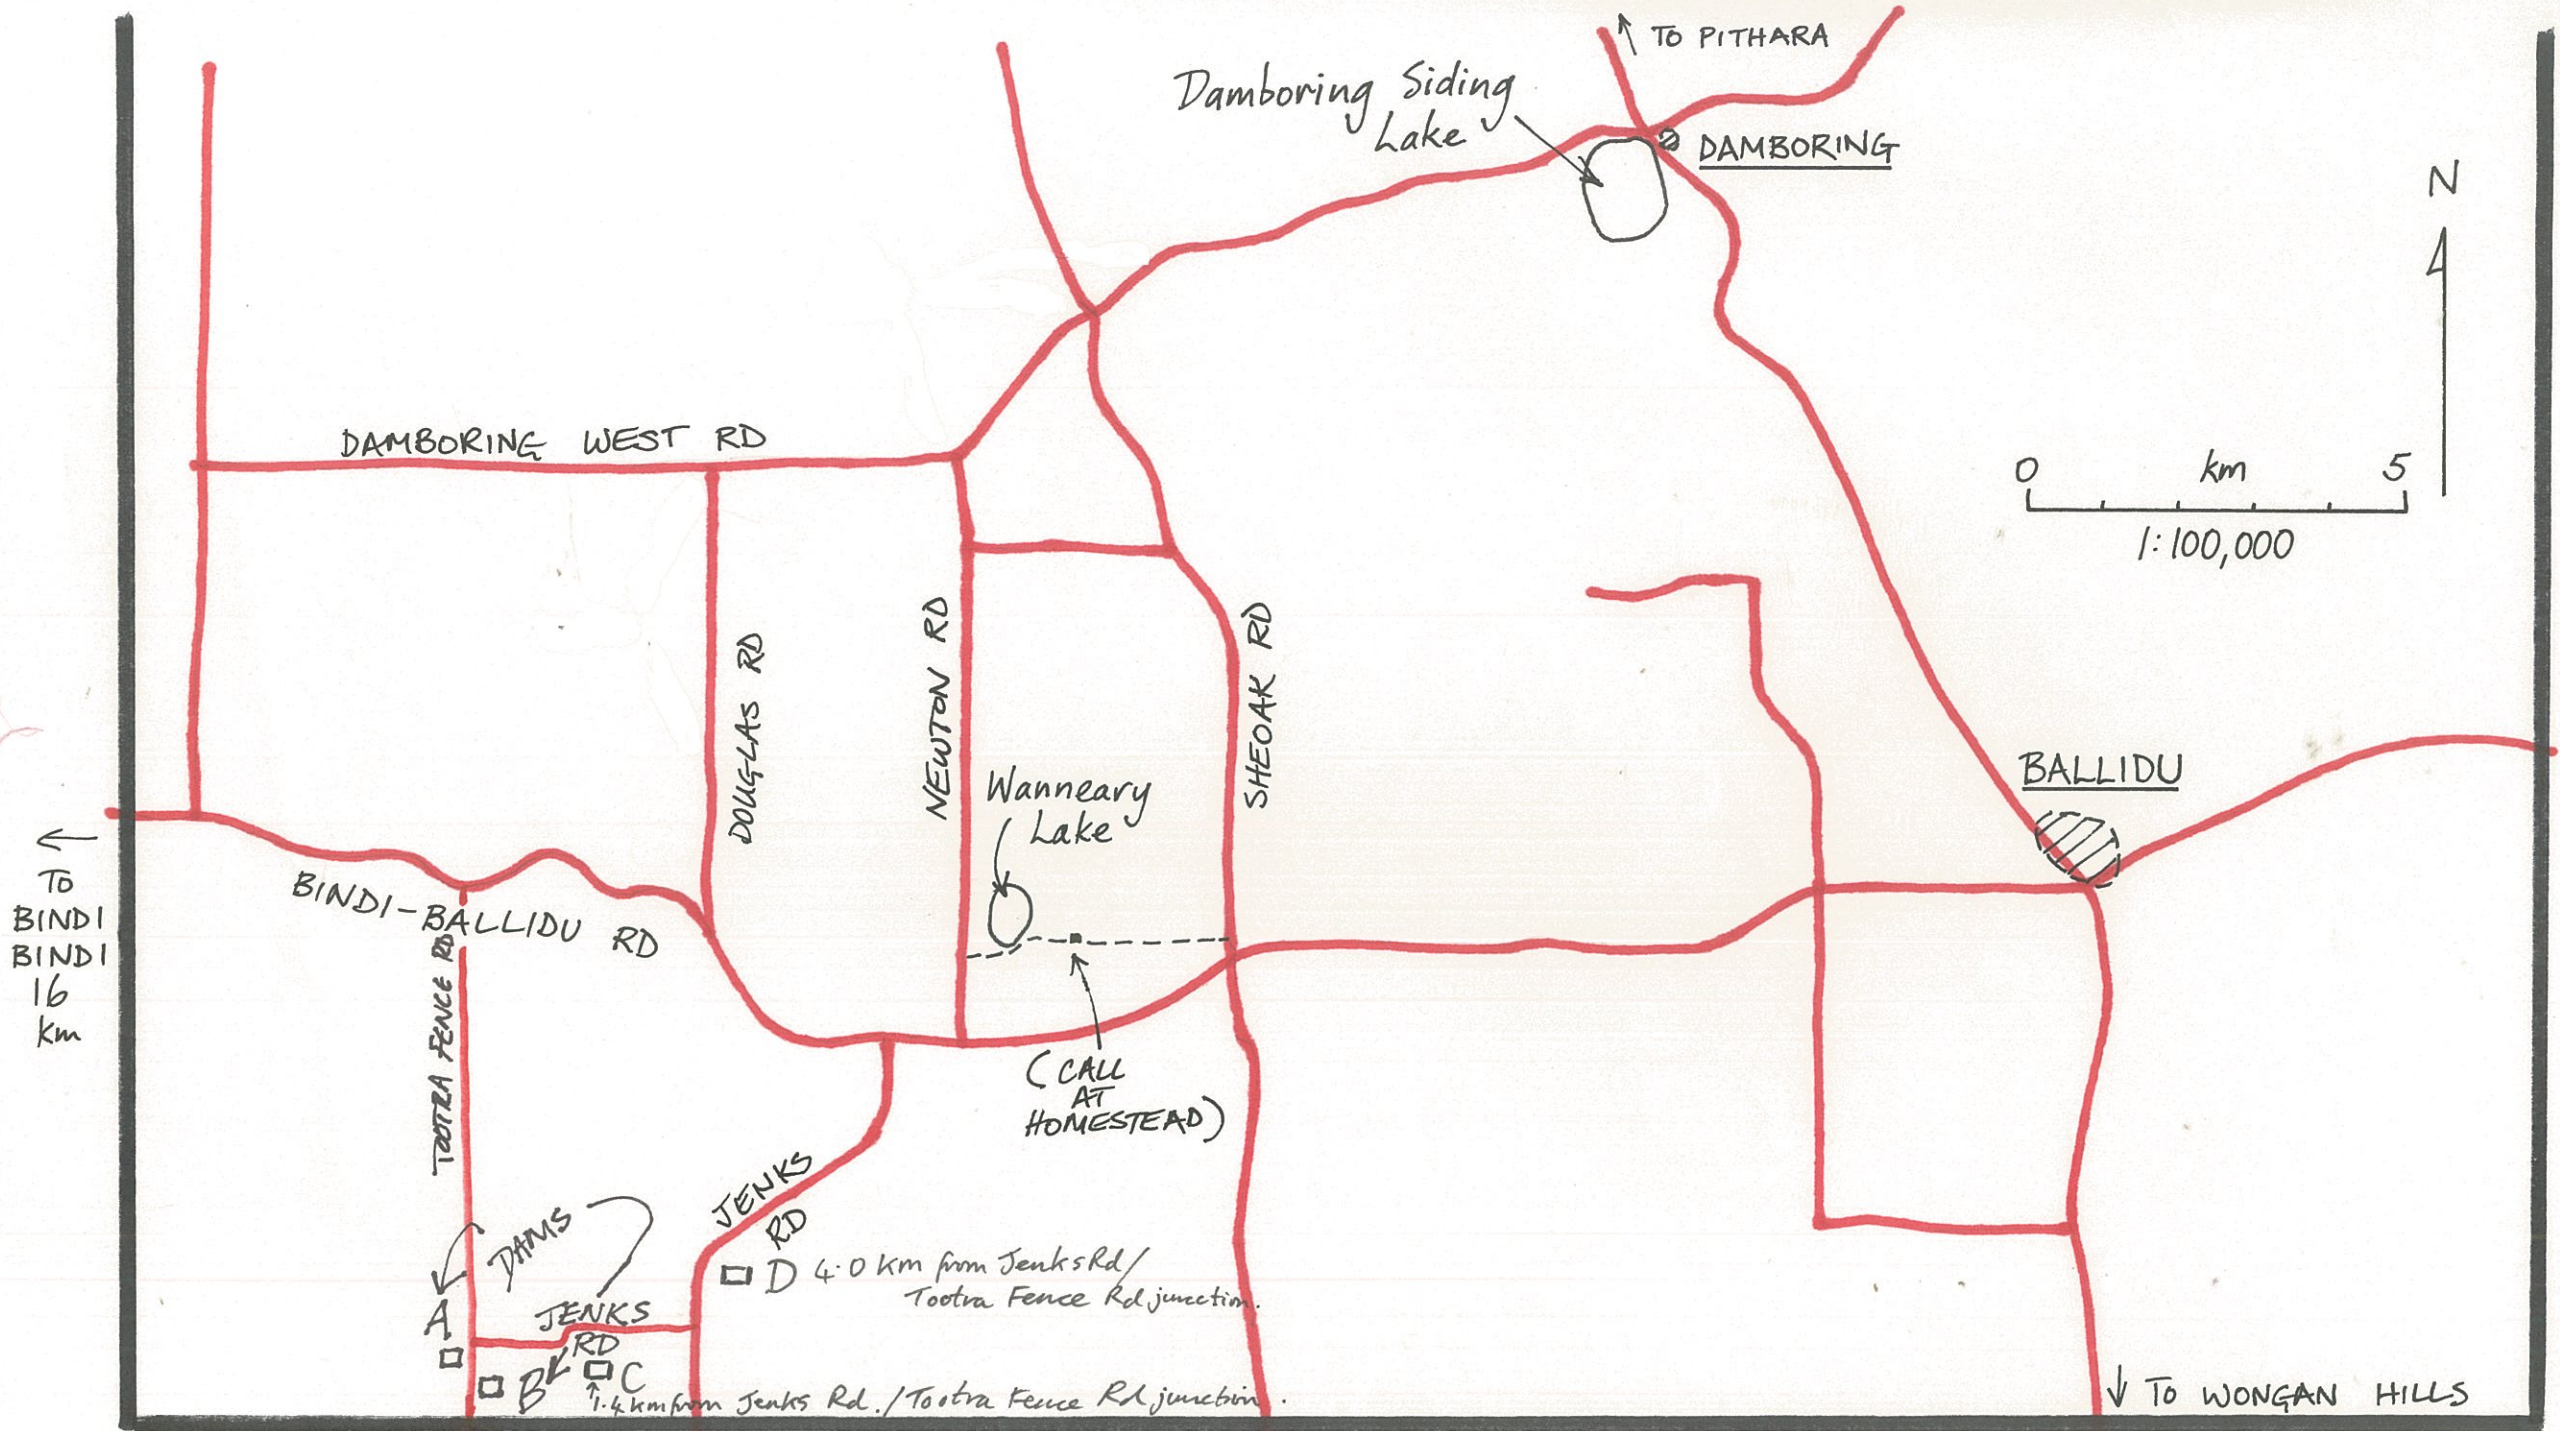 TO PITHARA
Damboring Siding
Lake
DAMBORING
N
DAMBORING WEST RD
0 km 5
1:100,000
DOUGLAS RD
NEWTON RD
SHEOAK RD
Wanneary
Lake
BALLIDU
TO
BINDI
BINDI
16
km
BINDI-BALLIDU RD
TOOTRA FENCE RD
(CALL
AT
HOMESTEAD)
JENKS
RD
DAMS
D 4.0 km from Jenks Rd/
Tootra Fence Rd junction.
A
JENKS
RD
B
C
1.4 km from Jenks Rd./Tootra Fence Rd junction.
TO WONGAN HILLS